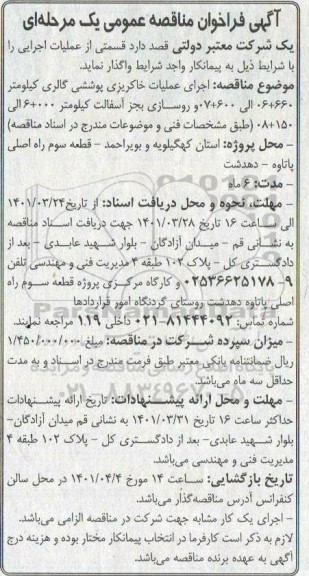 آگهی فراخوان مناقصه عمومی یک مرحله‌ای
یک شرکت معتبر دولتی قصد دارد قسمتی از عملیات اجرایی را
با شرایط ذیل به پیمانکار واجد شرایط واگذار نماید.
موضوع مناقصه: اجرای عملیات خاکریزی پوششی گالری کیلومتر
۰۶+۶۶۰ الی ۰۷+۶۰۰و روسازی بجز آسفالت کیلومتر ۶+۰۰۰ الی
۰۸+۱۵۰ (طبق مشخصات فنی و موضوعات مندرج در اسناد مناقصه)
- محل پروژه: استان کهگیلویه و بویراحمد - قطعه سوم راه اصلی
پاتاوه - دهدشت
- مدت: ۶ ماه
- مهلت، نحوه و محل دریافت اسناد: از تاریخ۱۴۰۱/۰۳/۲۴
الی ساعت ۱۶ تاریخ ۱۴۰۱/۰۳/۲۸ جهت دریافت اسناد مناقصه
به نشانی قم - میدان آزادگان - بلوار شهید عابدی - بعد از
دادگستری کل - پلاک ۱۰۲ طبقه ۴ مدیریت فنی و مهندسی تلفن
۹- ۰۲۵۳۶۶۲۵۱۷۸ و کارگاه مرکزی پروژه قطعه سوم راه
اصلی پاتاوه دهدشت روستای گردنگاه امور قراردادها
شماره تماس: ۸۱۴۴۴۰۹۲-۰۲۱ داخلی ۱۱۹ مراجعه نمایند.
- میزان سپرده شرکت در مناقصه: مبلغ ۱/۴۵۰/۰۰۰/۰۰۰
ریال ضمانتنامه بانکی معتبر طبق فرمت مندرج در اسناد و به مدت
حداقل سه ماه می‌باشد.
- مهلت و محل ارائه پیشنهادات: تاریخ ارائه پیشنهادات
حداکثر ساعت ۱۶ تاریخ ۱۴۰۱/۰۳/۳۱ به نشانی قم میدان آزادگان-
بلوار شهید عابدی- بعد از دادگستری کل - پلاک ۱۰۲ طبقه ۴
مدیریت فنی و مهندسی می‌باشد.
تاریخ بازگشایی: ساعت ۱۴ مورخ ۱۴۰۱/۰۴/۴ در محل سالن
کنفرانس آدرس مناقصه‌گذار می‌باشد.
- اجرای یک کار مشابه جهت شرکت در مناقصه الزامی می‌باشد.
لازم به ذکر است کارفرما در انتخاب پیمانکار مختار بوده و هزینه درج
آگهی به عهده برنده مناقصه می‌باشد.